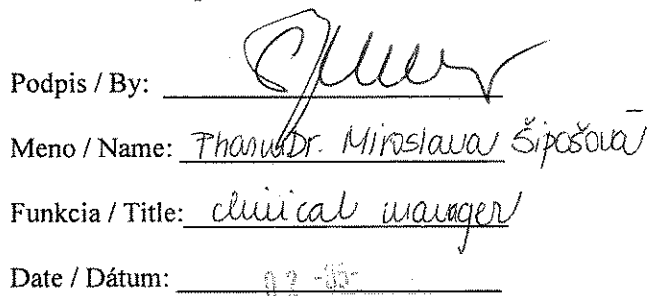 Podpis / By:
Meno / Name: PharmDr. Miroslava Šipošová
Funkcia / Title: clinical manager
Date / Dátum: